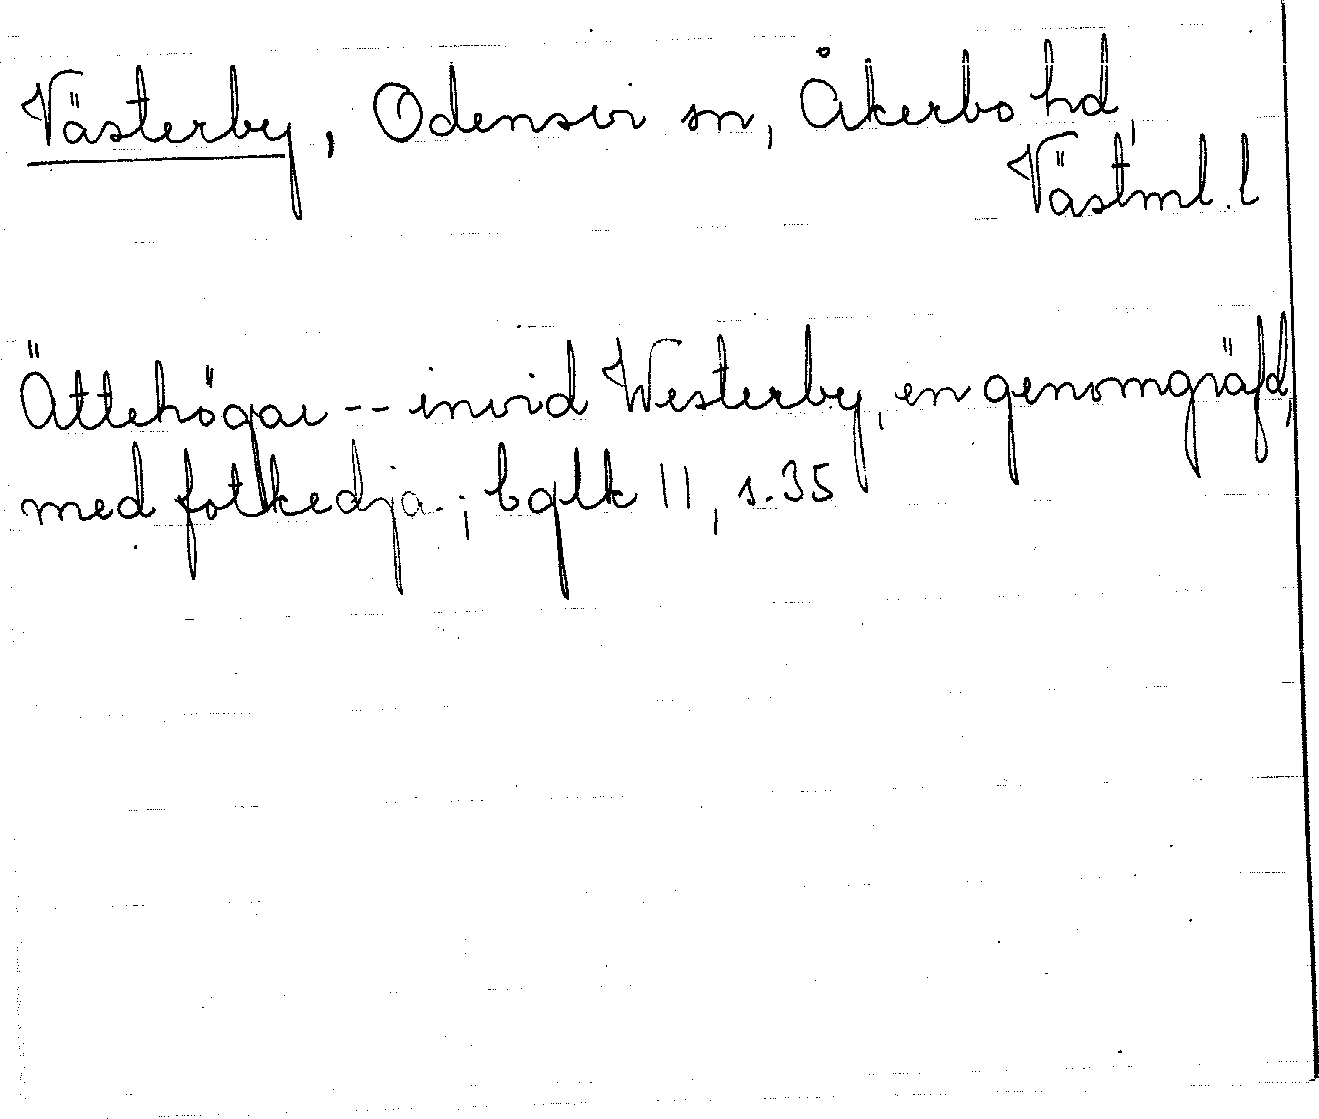 Västerby, Odensvi sn, Åkerbo hd,
Västml. l
Ättehögar -- invid Westerby, en genomgräfd,
med fotkedja.; bglk 11, s. 35